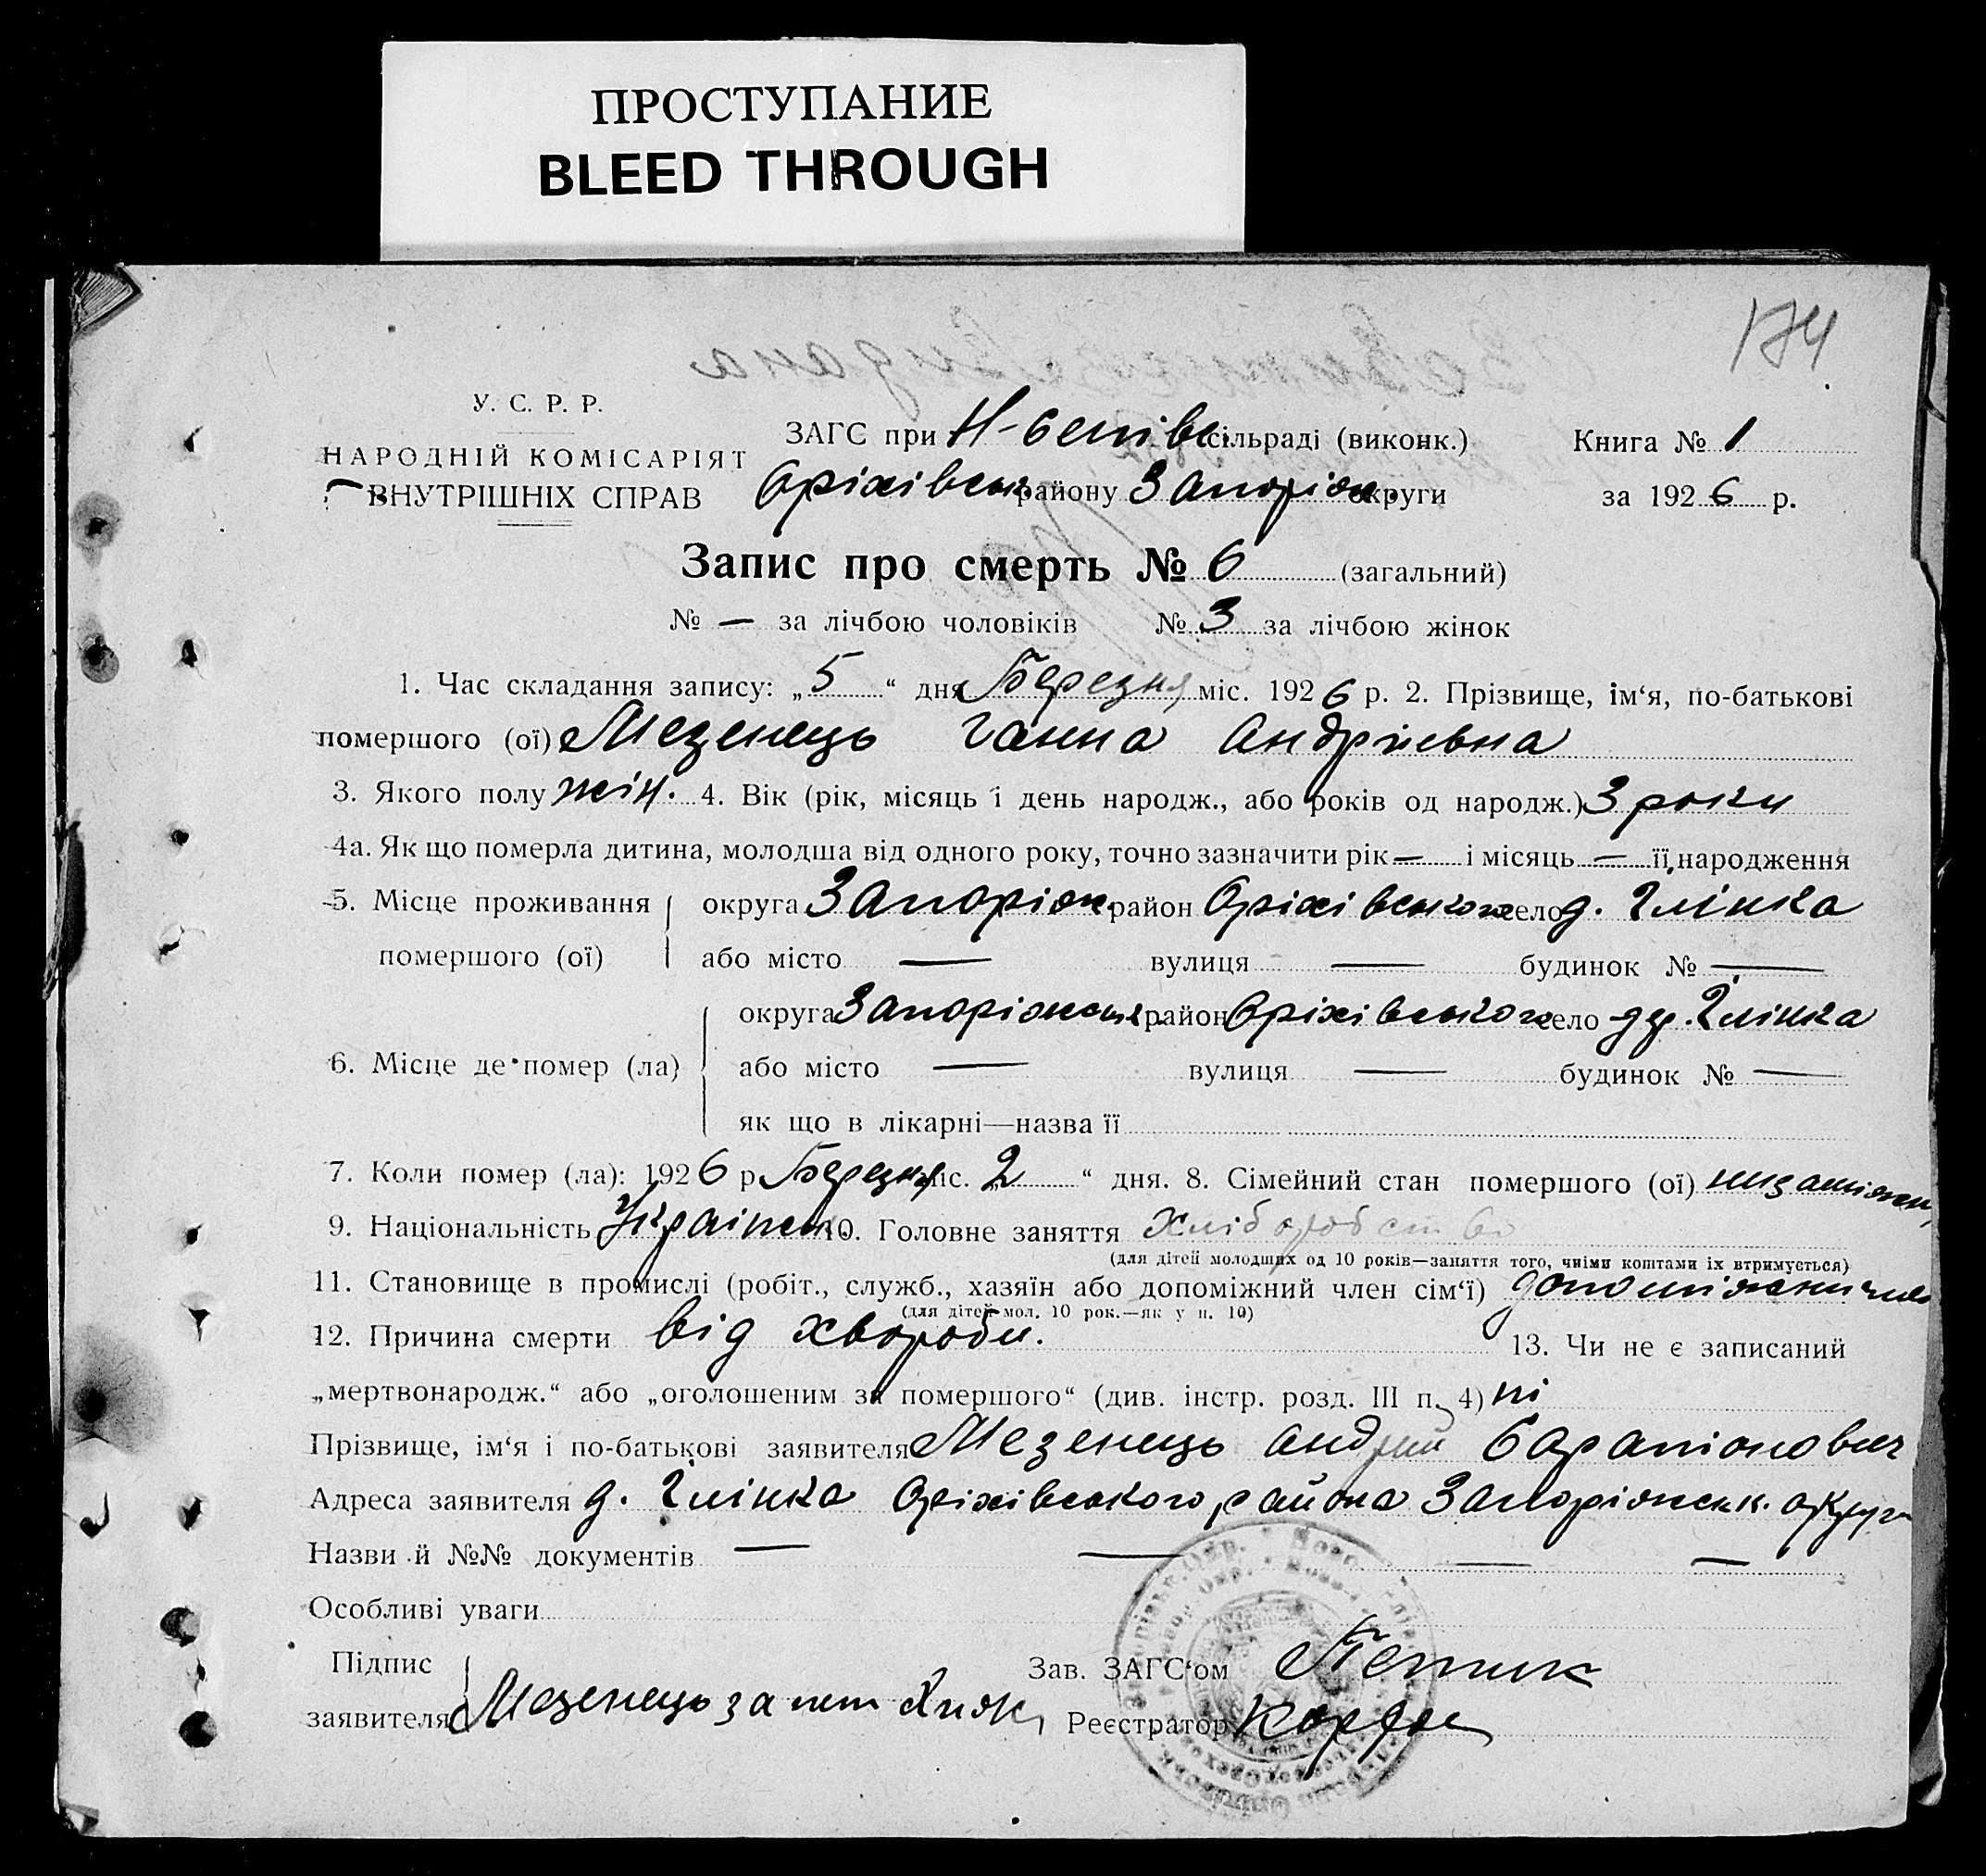 ПРОСТУПАНИЕ
BLEED THROUGH
174
У. С. Р. Р.
НАРОДНІЙ КОМІСАРІЯТ
ВНУТРІШНІХ СПРАВ
ЗАГС при сільраді (виконк.)
Оріхівськ району Запоріж. округи
Книга № 1
за 1926 р.
Запис про смерть № 6 (загальний)
№ — за лічбою чоловіків № 3 за лічбою жінок
1. Час складання запису: „5“ дня Березня міс. 1926 р. 2. Прізвище, ім‘я, по-батькові
помершого (ої) Мезенець Ганна Андріевна
3. Якого полу жін. 4. Вік (рік, місяць і день народж., або років од народж.) 3 роки
4а. Як що померла дитина, молодша від одного року, точно зазначити рік — і місяць — її народження
5. Місце проживання помершого (ої) округа Запоріж. район Оріхівського село д. Глінка
або місто — вулиця — будинок № —
6. Місце де помер (ла) округа Запоріжськ. район Оріхівського село дер. Глінка
або місто — вулиця — будинок № —
як що в лікарні—назва її
7. Коли помер (ла): 1926 р. Березня міс. „2“ дня. 8. Сімейний стан помершого (ої)
9. Національність Україн. 10. Головне заняття Хліборобство
(для дітей молодших од 10 років—заняття того, чиїми коштами їх втримується)
11. Становище в промислі (робіт., служб., хазяїн або допоміжний член сім‘ї)
(для дітей мол. 10 рок.—як у п. 10)
12. Причина смерти від хвороби. 13. Чи не є записаний
„мертвонародж.“ або „оголошеним за помершого“ (див. інстр. розд. III п. 4) ні
Прізвище, ім‘я і по-батькові заявителя Мезенець Андрій
Адреса заявителя д. Глінка Оріхівського района Запоріжськ. округи
Назви й №№ документів — — — —
Особливі уваги
Підпис
заявителя Мезенець за
Зав. ЗАГС‘ом
Реєстратор